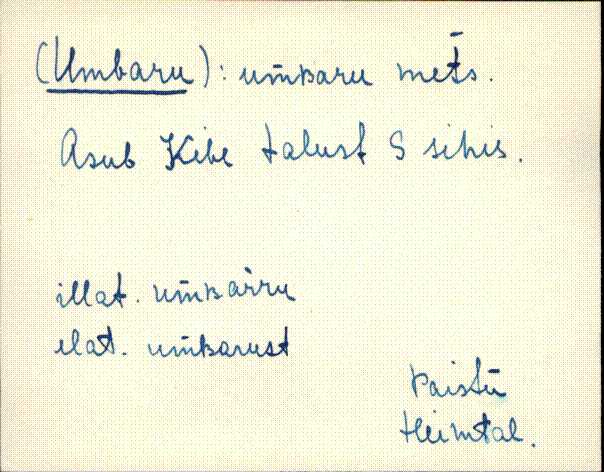 (Umbaru): um̄ʙaru met̄s.
Asub Kibe talust S sihis.
illat. um̄ʙar̀ru
elat. um̄ʙarust
Paistū
Heimtal.